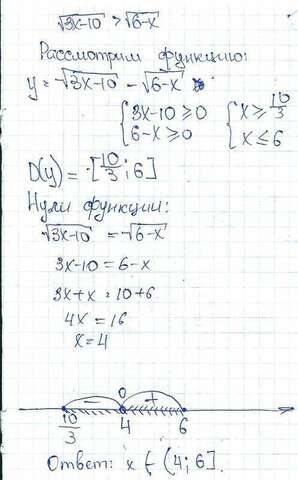 √3x-10 > √6-x
Рассмотрим функцию:
y = √3x-10 - √6-x
{3x-10 ≥ 0 {x ≥ 10/3
{6-x ≥ 0 {x ≤ 6
D(y) = [10/3; 6]
Нули функции:
√3x-10 = √6-x
3x-10 = 6-x
3x+x = 10+6
4x = 16
x = 4
- 0 +
10/3 4 6
Ответ: x ∈ (4; 6].